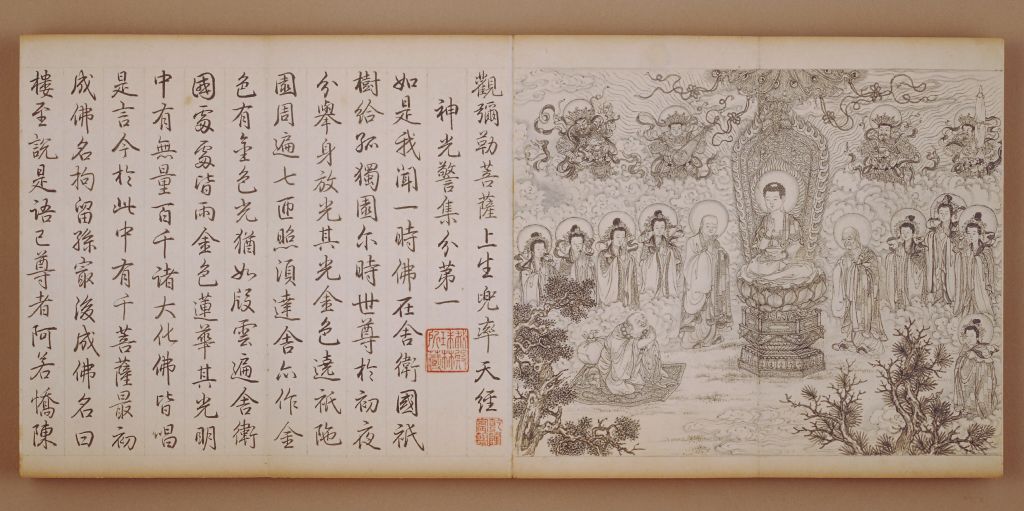 觀彌勒菩薩上生兜率天經
神光警集分第一
如是我聞一時佛在舍衛國祇
樹給孤獨園尓時世尊於初夜
分舉身放光其光金色遶祇陁
園周遍七匝照須達舍亦作金
色有金色光猶如段雲遍舍衛
國處處皆雨金色蓮華其光明
中有無量百千諸大化佛皆唱
是言今於此中有千菩薩最初
成佛名拘留孫冣後成佛名曰
樓至說是語已尊者阿若憍陳